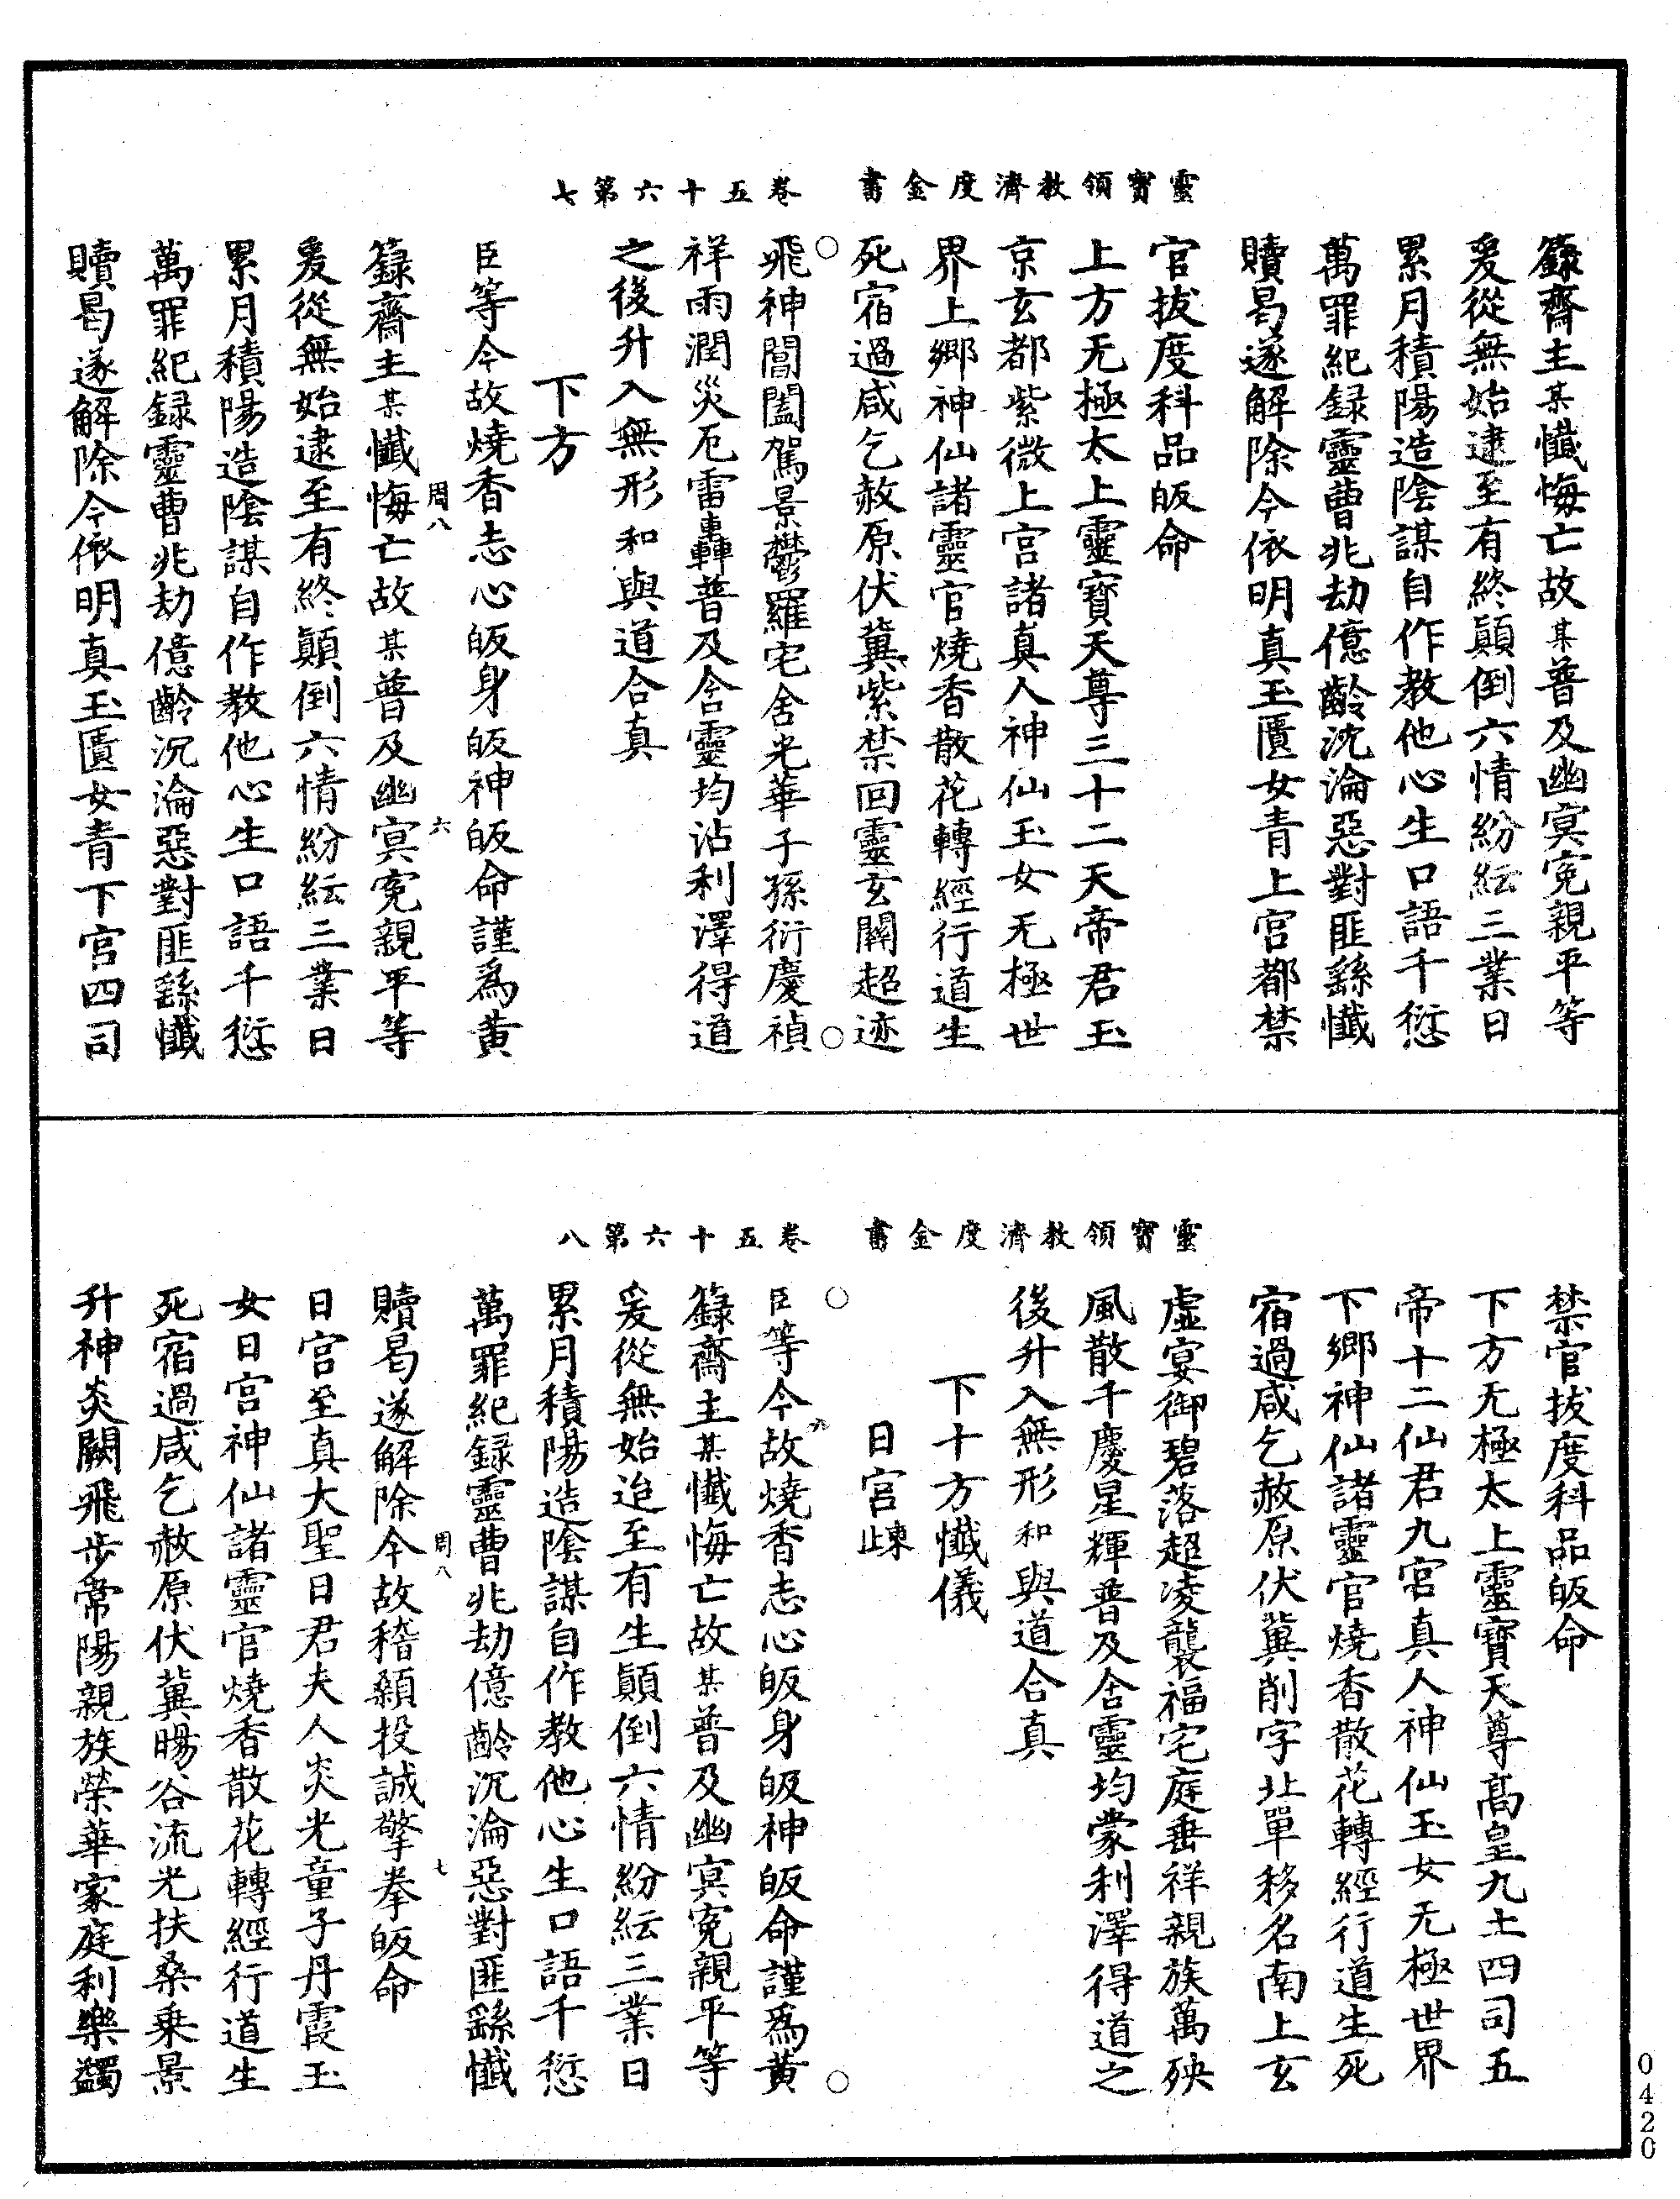 靈寶領教濟度金書 卷五十六第七
籙齋主某懺悔亡故某普及幽冥寃親平等
爰從無始逮至有終顛倒六情紛紜三業日
累月積陽造陰謀自作教他心生口語千愆
萬罪紀録靈曹兆劫億齡沈淪惡對匪繇懺
贖曷遂解除今依明真玉匱女青上宮都禁
官拔度科品皈命
上方无極太上靈寶天尊三十二天帝君玉
京玄都紫微上宮諸真人神仙玉女无極世
界上鄉神仙諸靈官燒香散花轉經行道生
死宿過咸乞赦原伏冀紫禁回靈玄關超迹
飛神閶闔駕景鬱羅宅舍光華子孫衍慶禎
祥雨潤災厄雷轟普及含靈均沾利澤得道
之後升入無形和與道合真
下方
臣等今故燒香志心皈身皈神皈命謹爲黄
周八
六
籙齋主某懺悔亡故某普及幽冥寃親平等
爰從無始逮至有終顛倒六情紛紜三業日
累月積陽造陰謀自作教他心生口語千愆
萬罪紀録靈曹兆劫億齡沉淪惡對匪繇懺
贖曷遂解除今依明真玉匱女青下官四司
靈寶領教濟度金書 卷五十六第八
禁官拔度科品皈命
下方无極太上靈寶天尊髙皇九土四司五
帝十二仙君九宮真人神仙玉女无極世界
下鄉神仙諸靈官燒香散花轉經行道生死
宿過咸乞赦原伏冀削字北單移名南上玄
虚宴御碧落超凌襲福宅庭垂祥親族萬殃
風散千慶星輝普及含靈均蒙利澤得道之
後升入無形和與道合真
下十方懺儀
日宮疎
臣等今故燒香志心皈身皈神皈命謹爲黄
籙齋主某懺悔亡故某普及幽冥寃親平等
爰從無始迨至有生顛倒六情紛紜三業日
累月積陽造陰謀自作教他心生口語千愆
萬罪紀録靈曹兆劫億齡沉淪惡對匪繇懺
周八
七
贖曷遂解除今故稽顙投誠擎拳皈命
日宮至真大聖日君夫人炎光童子丹霞玉
女日宮神仙諸靈官燒香散花轉經行道生
死宿過咸乞赦原伏冀暘谷流光扶桑乗景
升神炎闕飛步常陽親族榮華家庭利樂蠲
0420